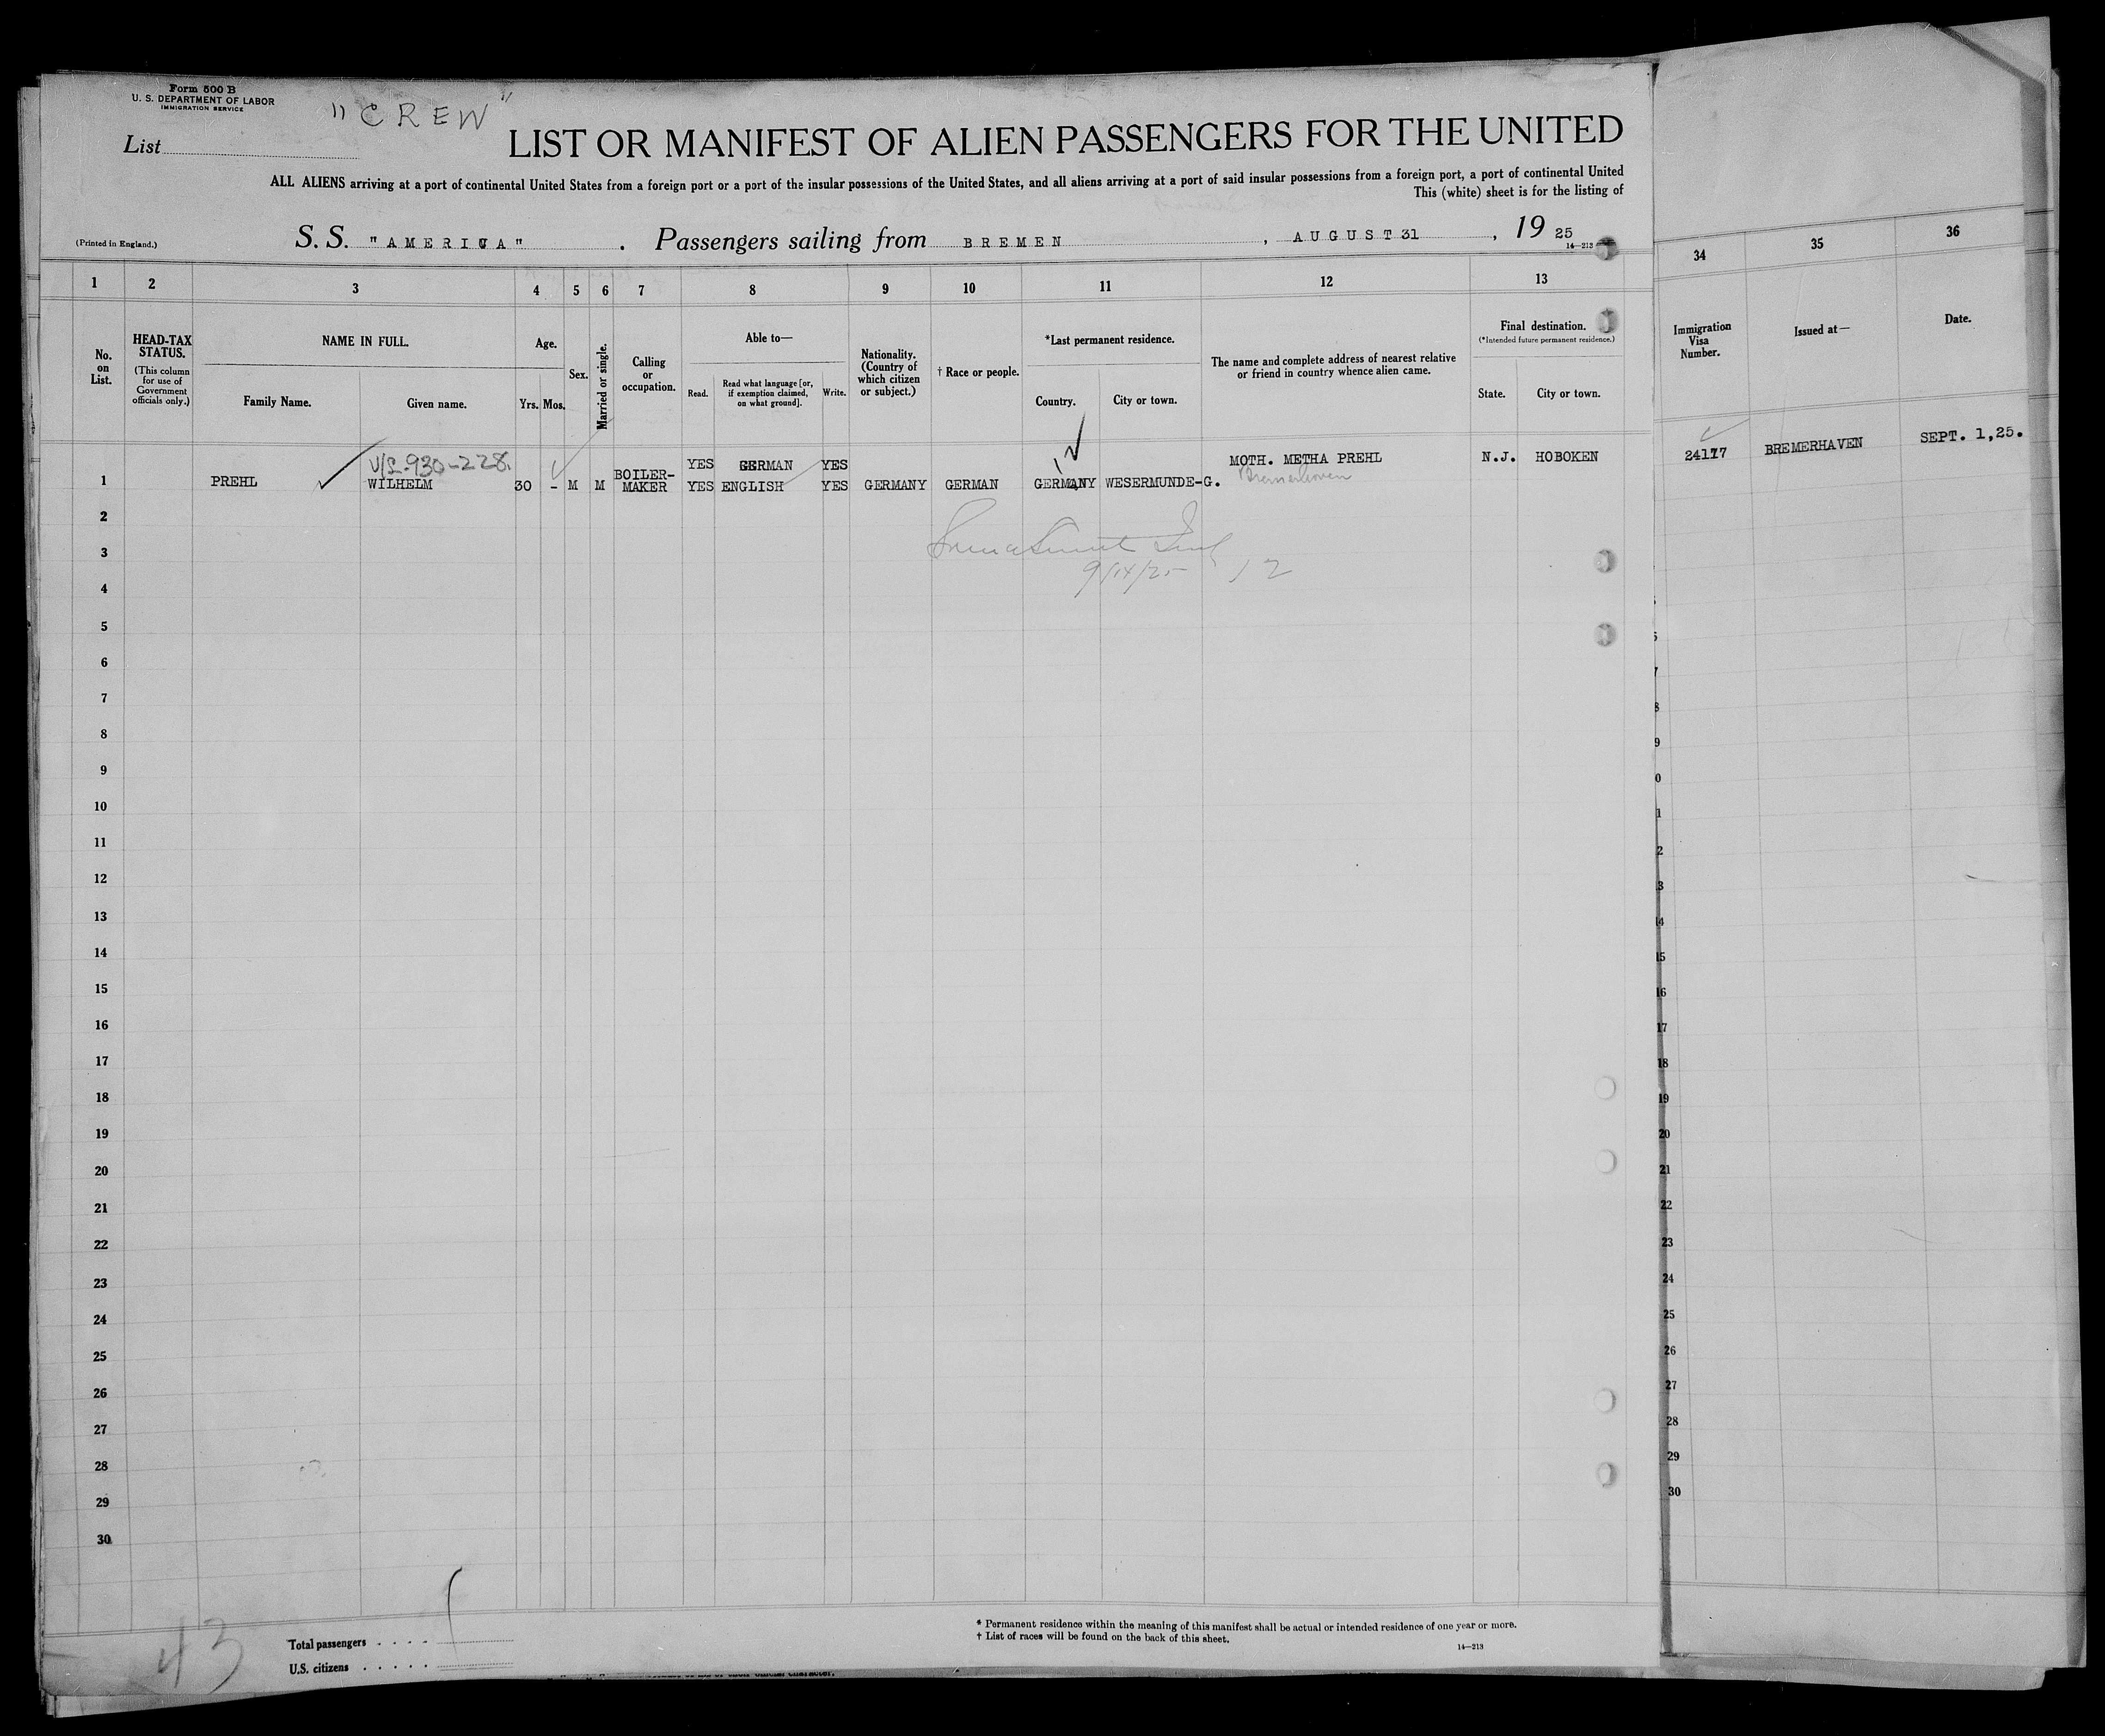 Form 500 B
U. S. DEPARTMENT OF LABOR
IMMIGRATION SERVICE
"CREW"
List
LIST OR MANIFEST OF ALIEN PASSENGERS FOR THE UNITED
ALL ALIENS arriving at a port of continental United States from a foreign port or a port of the insular possessions of the United States, and all aliens arriving at a port of said insular possessions from a foreign port, a port of continental United
This (white) sheet is for the listing of
(Printed in England.)
S. S. "AMERICA" . Passengers sailing from BREMEN, AUGUST 31, 19 25
14—213
1 2 3 4 5 6 7 8 9 10 11 12 13
34 35 36
No. on List.
HEAD-TAX STATUS.
(This column for use of Government officials only.)
NAME IN FULL.
Family Name.
Given name.
Age.
Yrs. Mos.
Sex.
Married or single.
Calling or occupation.
Able to—
Read.
Read what language [or, if exemption claimed, on what ground].
Write.
Nationality. (Country of which citizen or subject.)
† Race or people.
*Last permanent residence.
Country.
City or town.
The name and complete address of nearest relative or friend in country whence alien came.
Final destination.
(*Intended future permanent residence.)
State.
City or town.
Immigration Visa Number.
Issued at—
Date.
930-228.
YES GERMAN YES
MOTH. METHA PREHL N.J. HOBOKEN
1 PREHL WILHELM 30 - M M BOILER-MAKER YES ENGLISH YES GERMANY GERMAN GERMANY WESERMUNDE-G.
Bremerhaven
24117 BREMERHAVEN SEPT. 1,25.
2
3
9/14/25 12
4
5
6
7
8
9
10
11
12
13
14
15
16
17
18
19
20
21
22
23
24
25
26
27
28
29
30
5
7
8
9
0
1
2
3
14
15
16
17
18
19
20
21
22
23
24
25
26
27
28
29
30
43
Total passengers . . . .
U.S. citizens . . . . .
* Permanent residence within the meaning of this manifest shall be actual or intended residence of one year or more.
† List of races will be found on the back of this sheet.
14—213